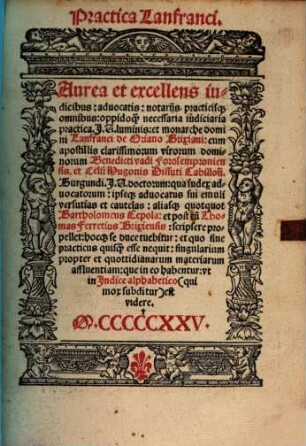 Practica Lanfranci.
Aurea et excellens iu-
dicibus: aduocatis: notarijs. practicisq̃
omnibus: oppidoq̃ necessaria iudiciaria
practica. J. U. luminis: et monarche dom
ni Lanfranci de Oriano Brixiani: cum
apostillis clarissimorum virorum domi-
norum Benedicti vadi Forosempronien
sis. et Celsi Hugonis Dissuti Cabiloñ.
Burgundi. J. U. doctorum: qua iudex ad-
uocatorum: ipseq̃ aduocatus sui emuli
versutias et cautelas: aliasq̃ quotquot
Bartholomeus Cepola: et post eũ Tho-
mas Ferretius Brixiensis: scripsere pro-
pellet: hocq̃ se duce tuebitur: et quo sine
practicus quisq̃ esse nequit: singularium
propter et quottidianarum materiarum
affluentiam: que in eo habentur: vt
in Jndice alphabetico (qui
mox subditur) est
videre.
M.CCCCCXXV.